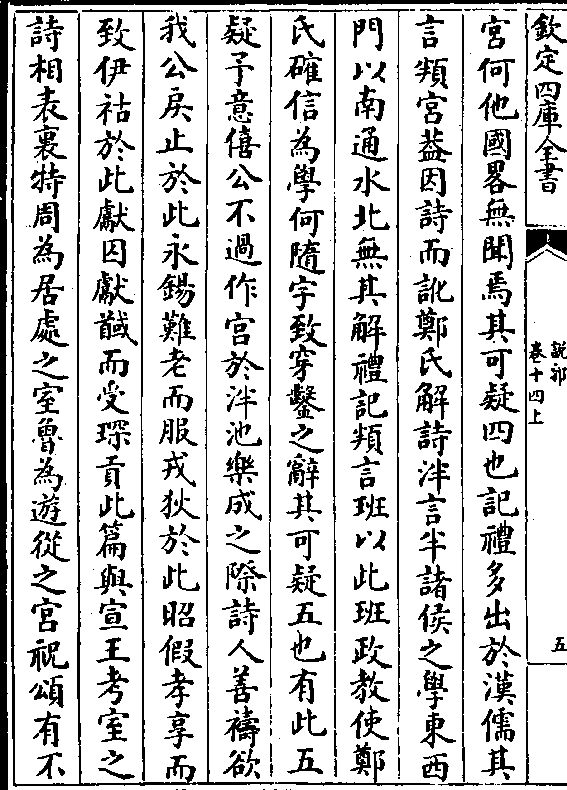 欽定四庫全書
說郛
卷十四上
五
宮何他國畧無聞焉其可疑四也記禮多出於漢儒其
言頖宮葢因詩而訛鄭氏解詩泮言半諸侯之學東西
門以南通水北無其解禮記頖言班以此班政教使鄭
氏確信為學何隨字致穿鑿之辭其可疑五也有此五
疑予意僖公不過作宮於泮池樂成之際詩人善禱欲
我公戾止於此永錫難老而服戎狄於此昭假孝享而
致伊祜於此獻囚獻馘而受琛貢此篇與宣王考室之
詩相表裏特周為居處之室魯為遊從之宮祝頌有不